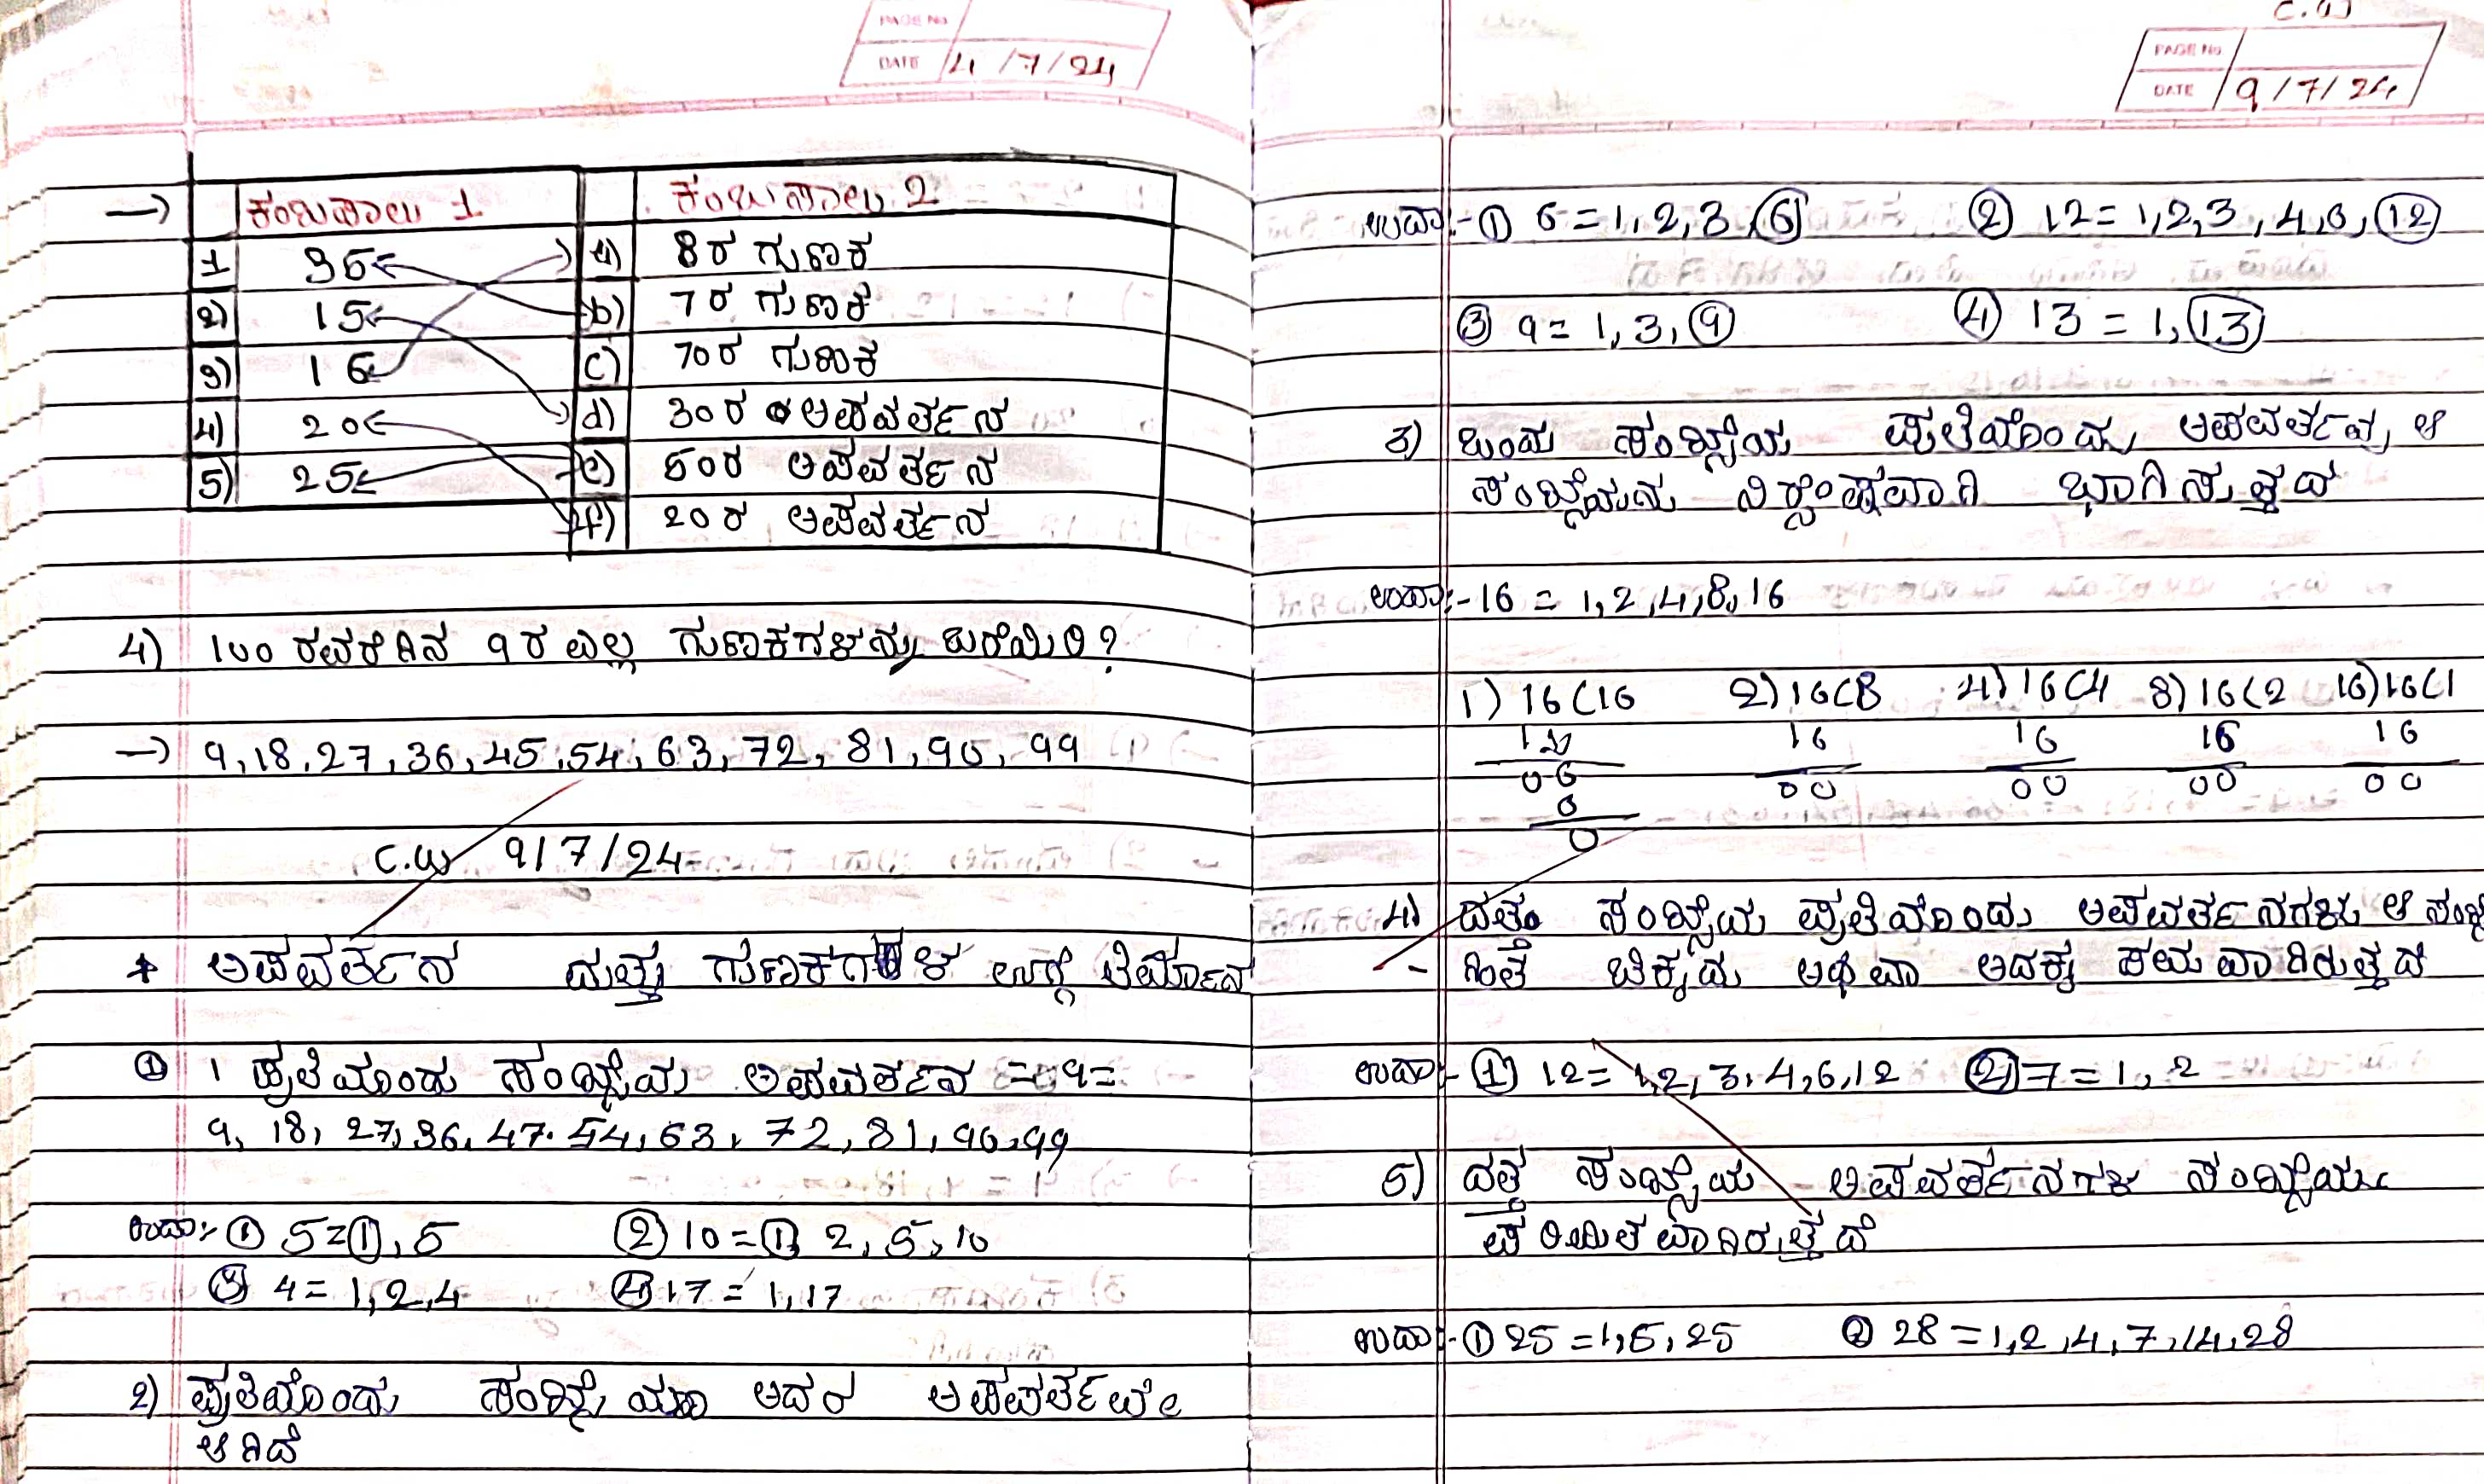 PAGE No
DATE 4/7/24
→) ಕಂಬಸಾಲು 1 ಕಂಬಸಾಲು 2
1 35 a) 8ರ ಗುಣಕ
2) 15 b) 7ರ ಗುಣಕ
3) 16 c) 70ರ ಗುಣಕ
4) 20 d) 30ರ ಅಪವರ್ತನ
5) 25 e) 50ರ ಅಪವರ್ತನ
f) 20ರ ಅಪವರ್ತನ
4) 100 ರವರೆಗಿನ 9ರ ಎಲ್ಲ ಗುಣಕಗಳನ್ನು ಬರೆಯಿರಿ?
→) 9,18,27,36,45,54,63,72,81,90,99
C.W 9/7/24
* ಅಪವರ್ತನ ಮತ್ತು ಗುಣಕಗಳ
① 1 ಪ್ರತಿಯೊಂದು ಸಂಖ್ಯೆಯ ಅಪವರ್ತನ = 9 =
9, 18, 27, 36, 47. 54, 63, 72, 81, 90, 99
ಉದಾ:- ① 5=①,5 ② 10=①, 2, 5, 10
③ 4=1,2,4 ④ 17=1,17
2) ಪ್ರತಿಯೊಂದು ಸಂಖ್ಯೆಯೂ ಅದರ ಅಪವರ್ತವೇ
ಆಗಿದೆ
C.W
PAGE No
DATE 9/7/24
ಉದಾ:- ① 6=1,2,3,⑥ ② 12=1,2,3,4,6,⑫
③ 9=1,3,⑨ ④ 13=1,⑬
3) ಒಂದು ಸಂಖ್ಯೆಯ ಪ್ರತಿಯೊಂದು ಅಪವರ್ತವು ಆ
ಸಂಖ್ಯೆಯನ್ನು ನಿಶ್ಶೇಷವಾಗಿ ಭಾಗಿಸುತ್ತದೆ
ಉದಾ:- 16 = 1,2,4,8,16
1) 16 (16 2) 16(8 4) 16(4 8) 16(2 16) 16(1
16 16 16 16
06 00 00 00 00
6
0
4) ದತ್ತ ಸಂಖ್ಯೆಯ ಪ್ರತಿಯೊಂದು ಅಪವರ್ತನಗಳು ಆ ಸಂಖ್ಯೆ
- ಗಿಂತ ಚಿಕ್ಕದು ಅಥವಾ ಅದಕ್ಕೆ ಸಮವಾಗಿರುತ್ತದೆ
ಉದಾ:- ① 12=1,2,3,4,6,12 ② 7=1,2
5) ದತ್ತ ಸಂಖ್ಯೆಯ - ಅಪವರ್ತನಗಳ ಸಂಖ್ಯೆಯು
ಪರಿಮಿತವಾಗಿರುತ್ತದೆ
ಉದಾ:- ① 25=1,5,25 ② 28=1,2,4,7,14,28